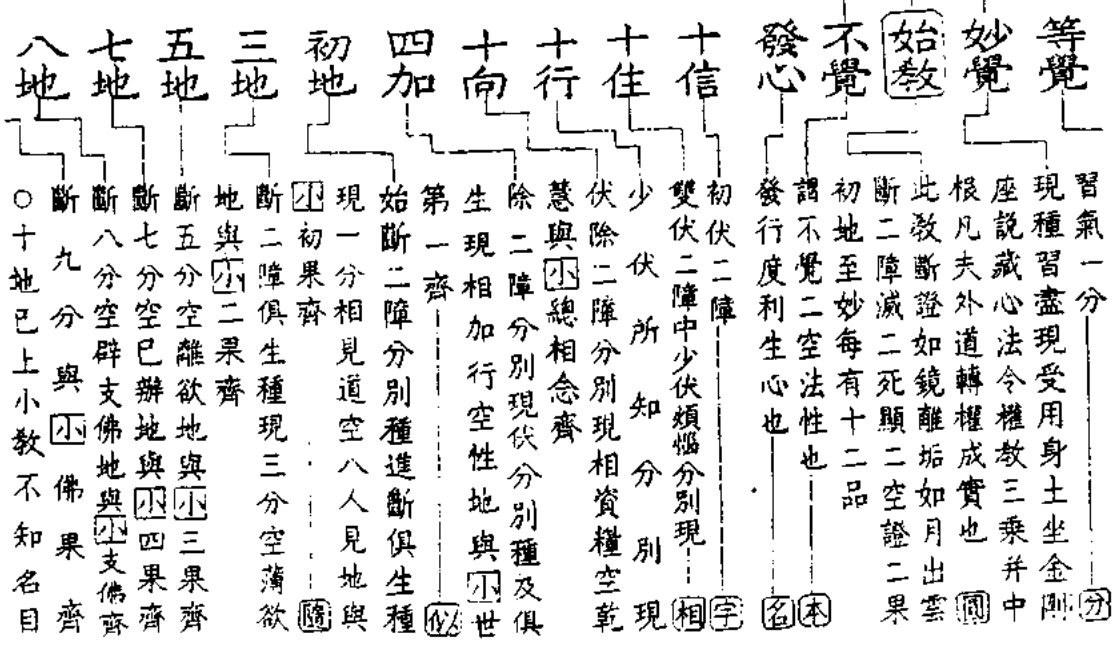 等覺
妙覺
始教
不覺
發心
十信
十住
十行
十向
四加
初地
三地
五地
七地
八地
習氣一分 分
現種習盡現受用身土坐金剛
座說藏心法令權教三乘并中
根凡夫外道轉權成實也 圓
此教斷證如鏡離垢如月出雲
斷二障滅二死顯二空證二果
初地至妙每有十二品
謂不覺二空法性也 本
發行度利生心也 名
初伏二障 字
雙伏二障中少伏煩惱分別現 相
少伏所知分別現
伏除二障分別現相資糧空乾
慧與小總相念齊
除二障分別現伏分別種及俱
生現相加行空性地與小世
第一齊 似
始斷二障分別種進斷俱生種
現一分相見道空八人見地與
小初果齊 隨
斷二障俱生種現三分空薄欲
地與小二果齊
斷五分空離欲地與小三果齊
斷七分空已辦地與小四果齊
斷八分空辟支佛地與小支佛齊
斷九分與小佛果齊
○十地已上小教不知名目